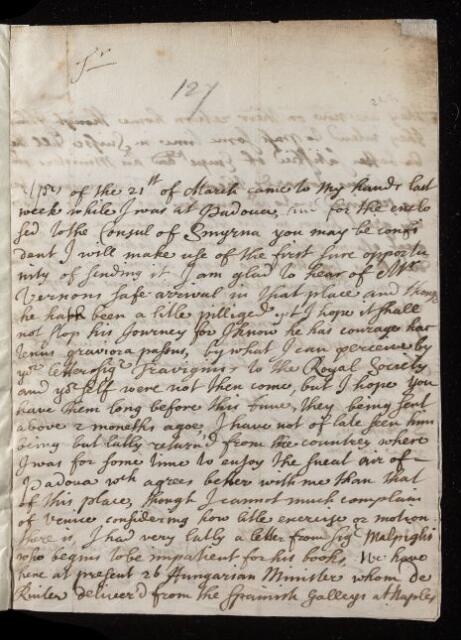 Sr
127
Yrs of the 21st of March came to my hands last
week while I was at Padoua, and for the enclo
sed to the Consul of Smyrna you may be confi
dent I will make use of the first sure opportu
nity of sending it I am glad to hear of Mr
Vernons safe arrival in that place and though
he hath been a litle pilliged yet I hope it shall
not stop his Journey for I know he has courage hac
tenus graviora passus, by what I can perceive by
yr letter Sigr Travignis to the Royal Society
and yr self were not then come, but I hope you
have them long before this time, they being sent
above 2 moneths agoe, I have not of late seen him
being but latly return'd from the countrey where
I was for some time to enjoy the sueat air of
Padoua wch agrees better with me than that
of this place, though I cannot much complain
of Venice considering how litle exercise or motion
there is, I had very latly a letter from Sigr Malpighi
who begins to be impatient for his books, We have
here at present 26 Hungarian Minister whom de
Ruiter deliver'd from the Spanish Galleys at Naples